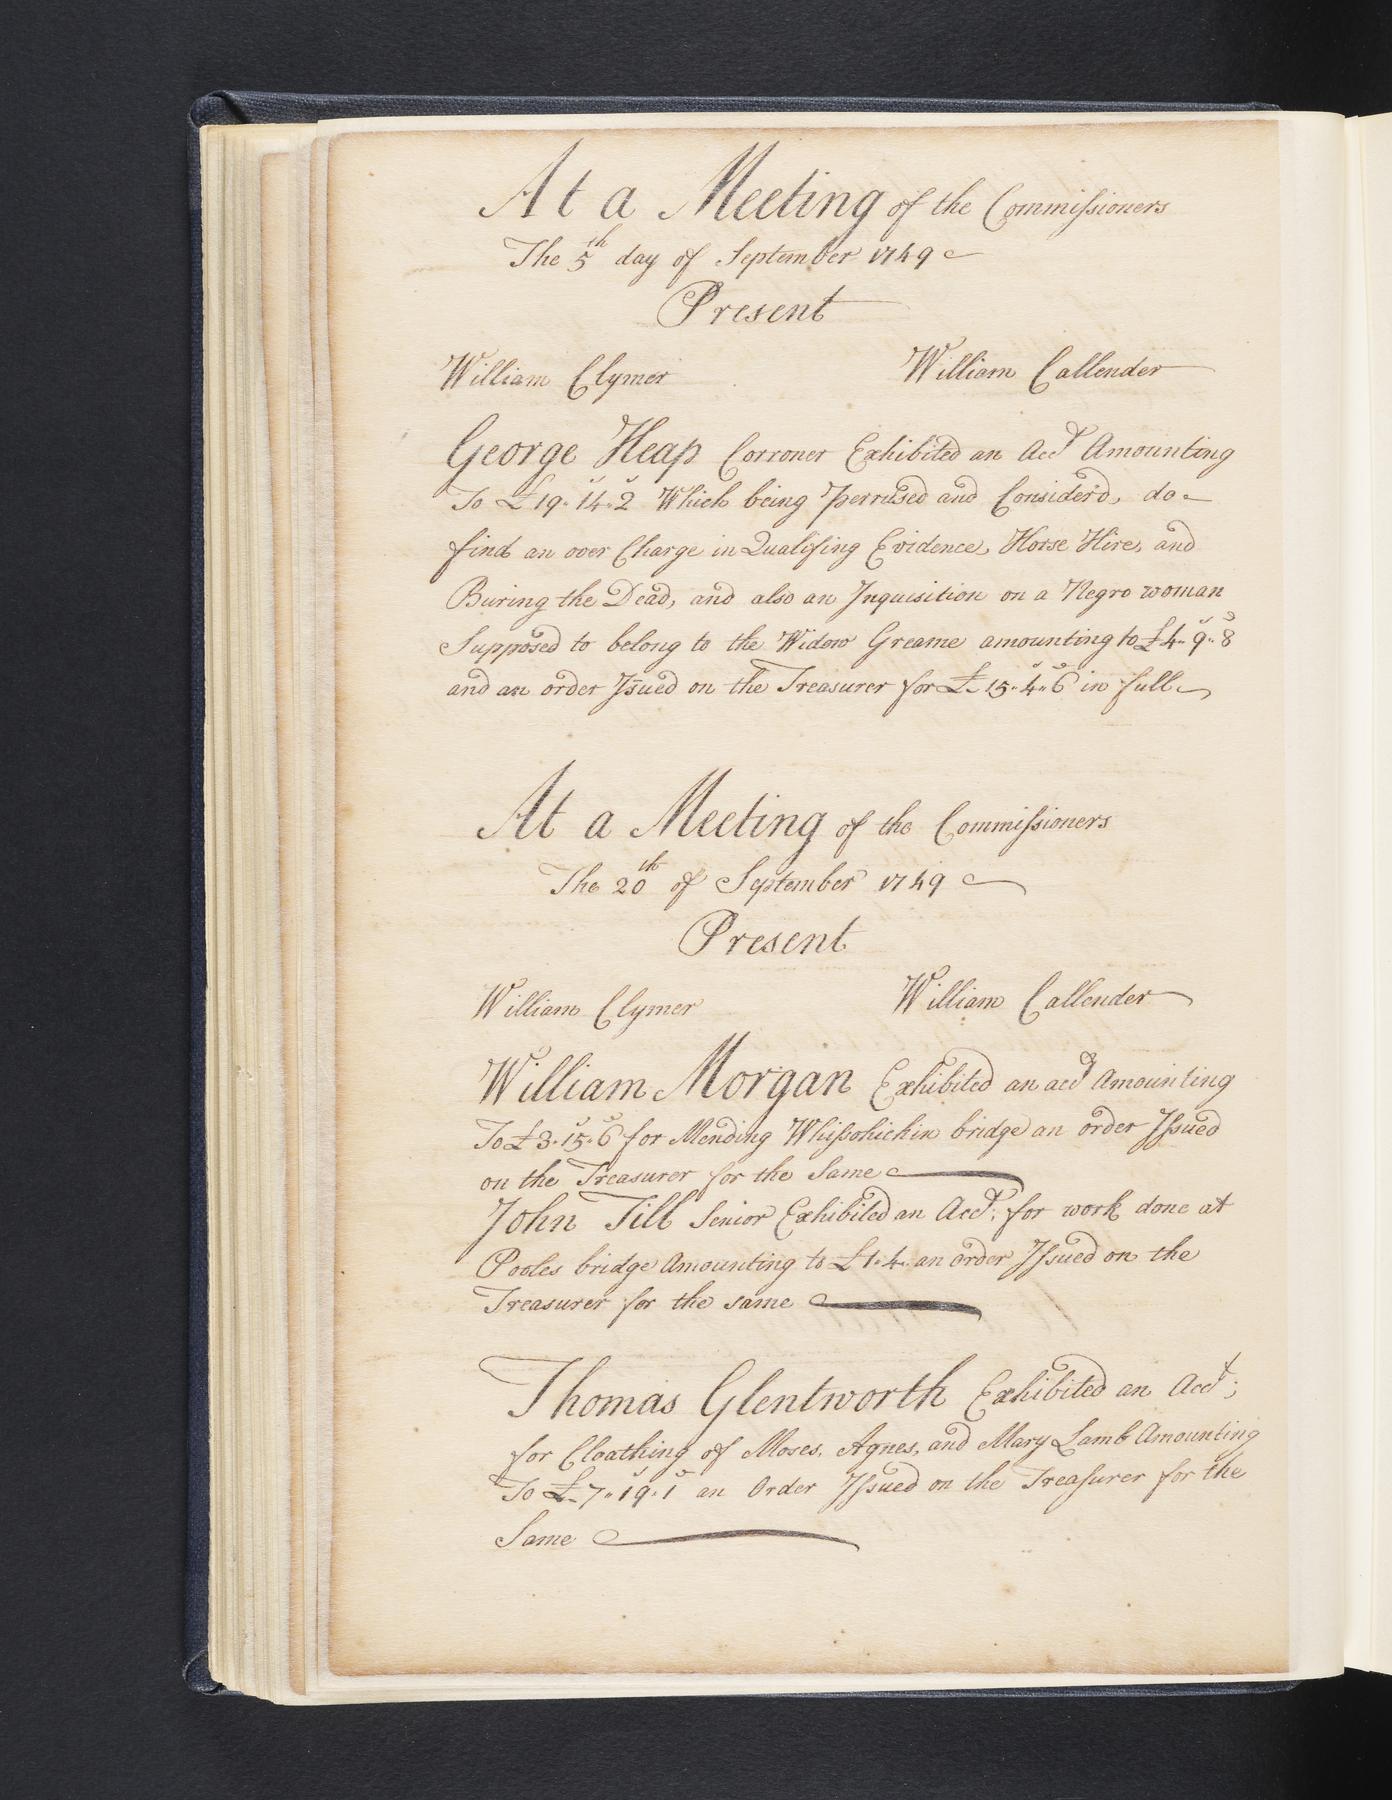 At a Meeting of the Commissioners
The 5th day of September 1749
Present
William Clymer William Callender
George Heap Corroner Exhibited an Acct Amounting
To £19.14.2 Which being Perrused and Consider'd, do
find an over Charge in Qualifing Evidence, Horse Hire, and
Buring the Dead, and also an Inquisition on a Negro woman
Supposed to belong to the Widow Greame amounting to £4.9.8
and an order Issued on the Treasurer for £15.4.6 in full
At a Meeting of the Commissioners
The 20th of September 1749
Present
William Clymer William Callender
William Morgan Exhibited an acct Amounting
To £3.15.6 for Mending Whissohickin bridge an order Issued
on the Treasurer for the Same
John Till Senior Exhibited an Acct. for work done at
Pooles bridge Amounting to £1.4. an order Issued on the
Treasurer for the same
Thomas Glentworth Exhibited an Acct;
for Cloathing of Moses, Agnes, and Mary Lamb Amounting
To £7.19.1 an Order Issued on the Treasurer for the
Same